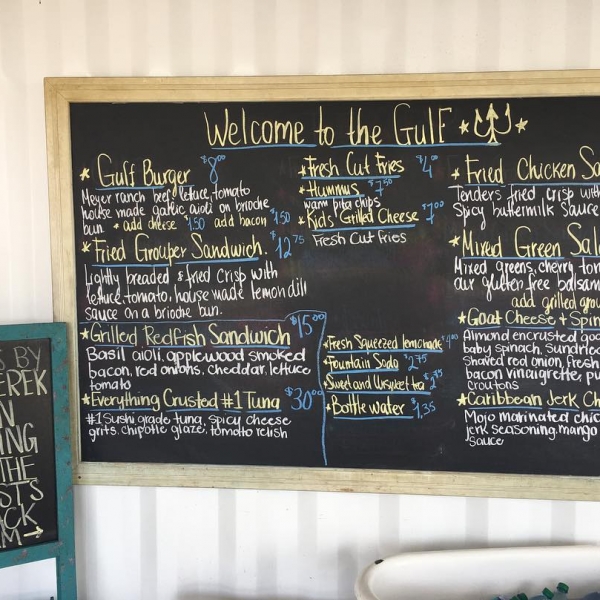 Welcome to the Gulf
Gulf Burger $8.00
Meyer ranch beef lettuce, tomato
house made garlic aioli on brioche
bun. * add cheese 1.50 add bacon $1.50
Fried Grouper Sandwich. $12.75
Lightly breaded & fried crisp with
lettuce, tomato, house made lemon dill
sauce on a brioche bun.
Grilled Redfish Sandwich $15.00
Basil aioli, applewood smoked
bacon, red onions, cheddar, lettuce
tomato
Everything Crusted #1 Tuna $30.00
#1 Sushi grade tuna, spicy cheese
grits, chipotle glaze, tomato relish
Fresh Cut Fries $4.00
Hummus $7.50
warm pita chips
Kids Grilled Cheese $7.00
Fresh Cut Fries
Fresh Squeezed lemonade
Fountain Soda $2.75
Sweet and Unsweet tea
Bottle water $1.35
Fried Chicken Sa
Tenders fried crisp with
Spicy buttermilk sauce
Mixed Green Sal
Mixed greens, cherry tom
our gluten free balsam
add grilled grou
Goat Cheese & Spin
Almond encrusted goa
baby spinach, sundried
shaved red onion, fresh
bacon vinaigrette, pu
croutons
Caribbean Jerk Ch
Mojo marinated chic
jerk seasoning, mango
sauce
S BY
EREK
N
NG
THE
STS
CK
M→